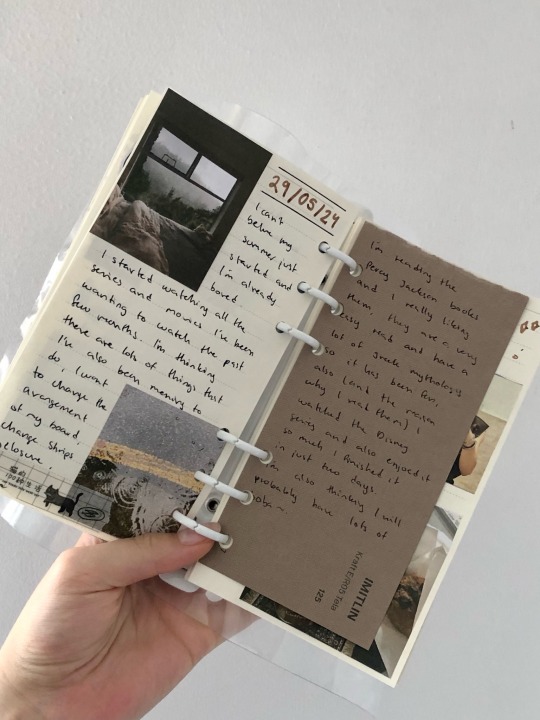 29/05/24
I can't
belive my
summer just
started and
I'm already
bored.
I started watching all the
series and movies I've been
wanting to watch the past
few months. I'm thinking
there are lots of things that
I've also been meaning to
do, I want
to change the
arrangement
of my board,
change ships
closure.
I'm reading the
Percy Jackson books
and I really liking
them, they are a very
easy read and have a
lot of greek mythology
so it has been fun,
also (and the reason
why I read them) I
watched the Disney
series and also enjoyed it
so much, I finished it
in just two days.
I'm also thinking I will
probably have lots of
IMITLIN
Kraft E/R05 Tala
125